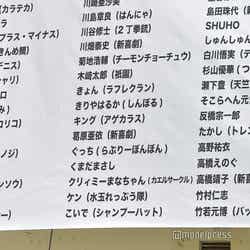 (カラテカ)
プラス・マイナス)
きんめ鯛)
デニス)
シャリ)
ラ
コリコ)
ノジ)
ンソウ)
ー)
川崎亜沙美
川島章良(はんにゃ)
川谷修士(2丁拳銃)
川畑泰史(新喜劇)
菊地浩輔(チーモンチョーチュウ)
木﨑太郎(祇園)
きょん(ラフレクラン)
きりやはるか(しんぼる)
キング(アゲカラス)
葛原亜依(新喜劇)
ぐっち(らぶりーぽんぽん)
くまだまさし
クリィミーまなちゃん(カエルサークル)
ケン(水玉れっぷう隊)
こいで(シャンプーハット)
島田珠代(新
SHUHO
しゅんしゅん
白川悟実(デ
杉山優華(つ
瀬下豊(天竺
そこらへん元
反橋宗一郎
たかし(トレン
高野祐衣
高橋えのぐ
高橋靖子(新
竹村仁志
竹若元博(バッ
@modelpress